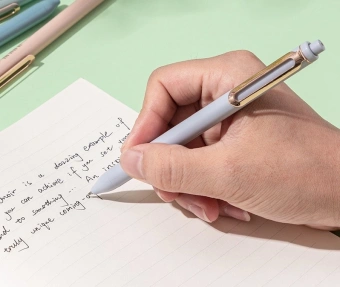 is a dazzling example of
you can achieve if you set
to something... An
truly unique coming